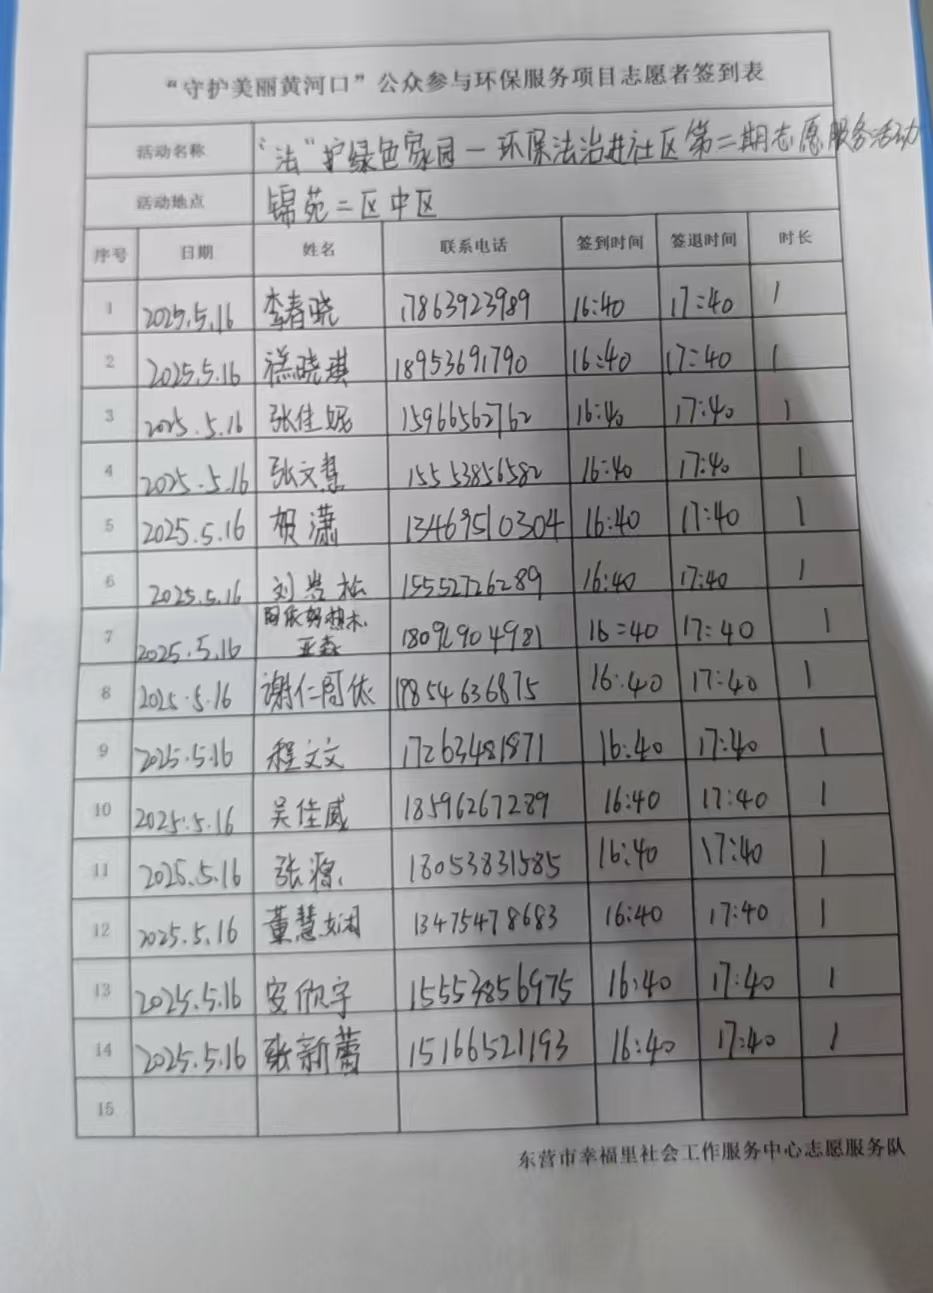 “守护美丽黄河口”公众参与环保服务项目志愿者签到表
活动名称 “法”护绿色家园—环保法治进社区第二期志愿服务活动
活动地点 锦苑二区中区
序号 日期 姓名 联系电话 签到时间 签退时间 时长
1 2025.5.16 李春晓 17863923989 16:40 17:40 1
2 2025.5.16 禚晓琪 18953691790 16:40 17:40 1
3 2025.5.16 张佳妮 15966562762 16:40 17:40 1
4 2025.5.16 张文慧 15553856582 16:40 17:40 1
5 2025.5.16 胡潇 13469510304 16:40 17:40 1
6 2025.5.16 刘岩松 15552726289 16:40 17:40 1
7 2025.5.16 阿依努热木·
亚森 18096904981 16:40 17:40 1
8 2025.5.16 谢仁阿依 18854636875 16:40 17:40 1
9 2025.5.16 程文文 17263481871 16:40 17:40 1
10 2025.5.16 吴佳威 18596267289 16:40 17:40 1
11 2025.5.16 张源 18053831585 16:40 17:40 1
12 2025.5.16 董慧娴 13475478683 16:40 17:40 1
13 2025.5.16 安欣宇 15553856975 16:40 17:40 1
14 2025.5.16 张新蕾 15166521193 16:40 17:40 1
15
东营市幸福里社会工作服务中心志愿服务队